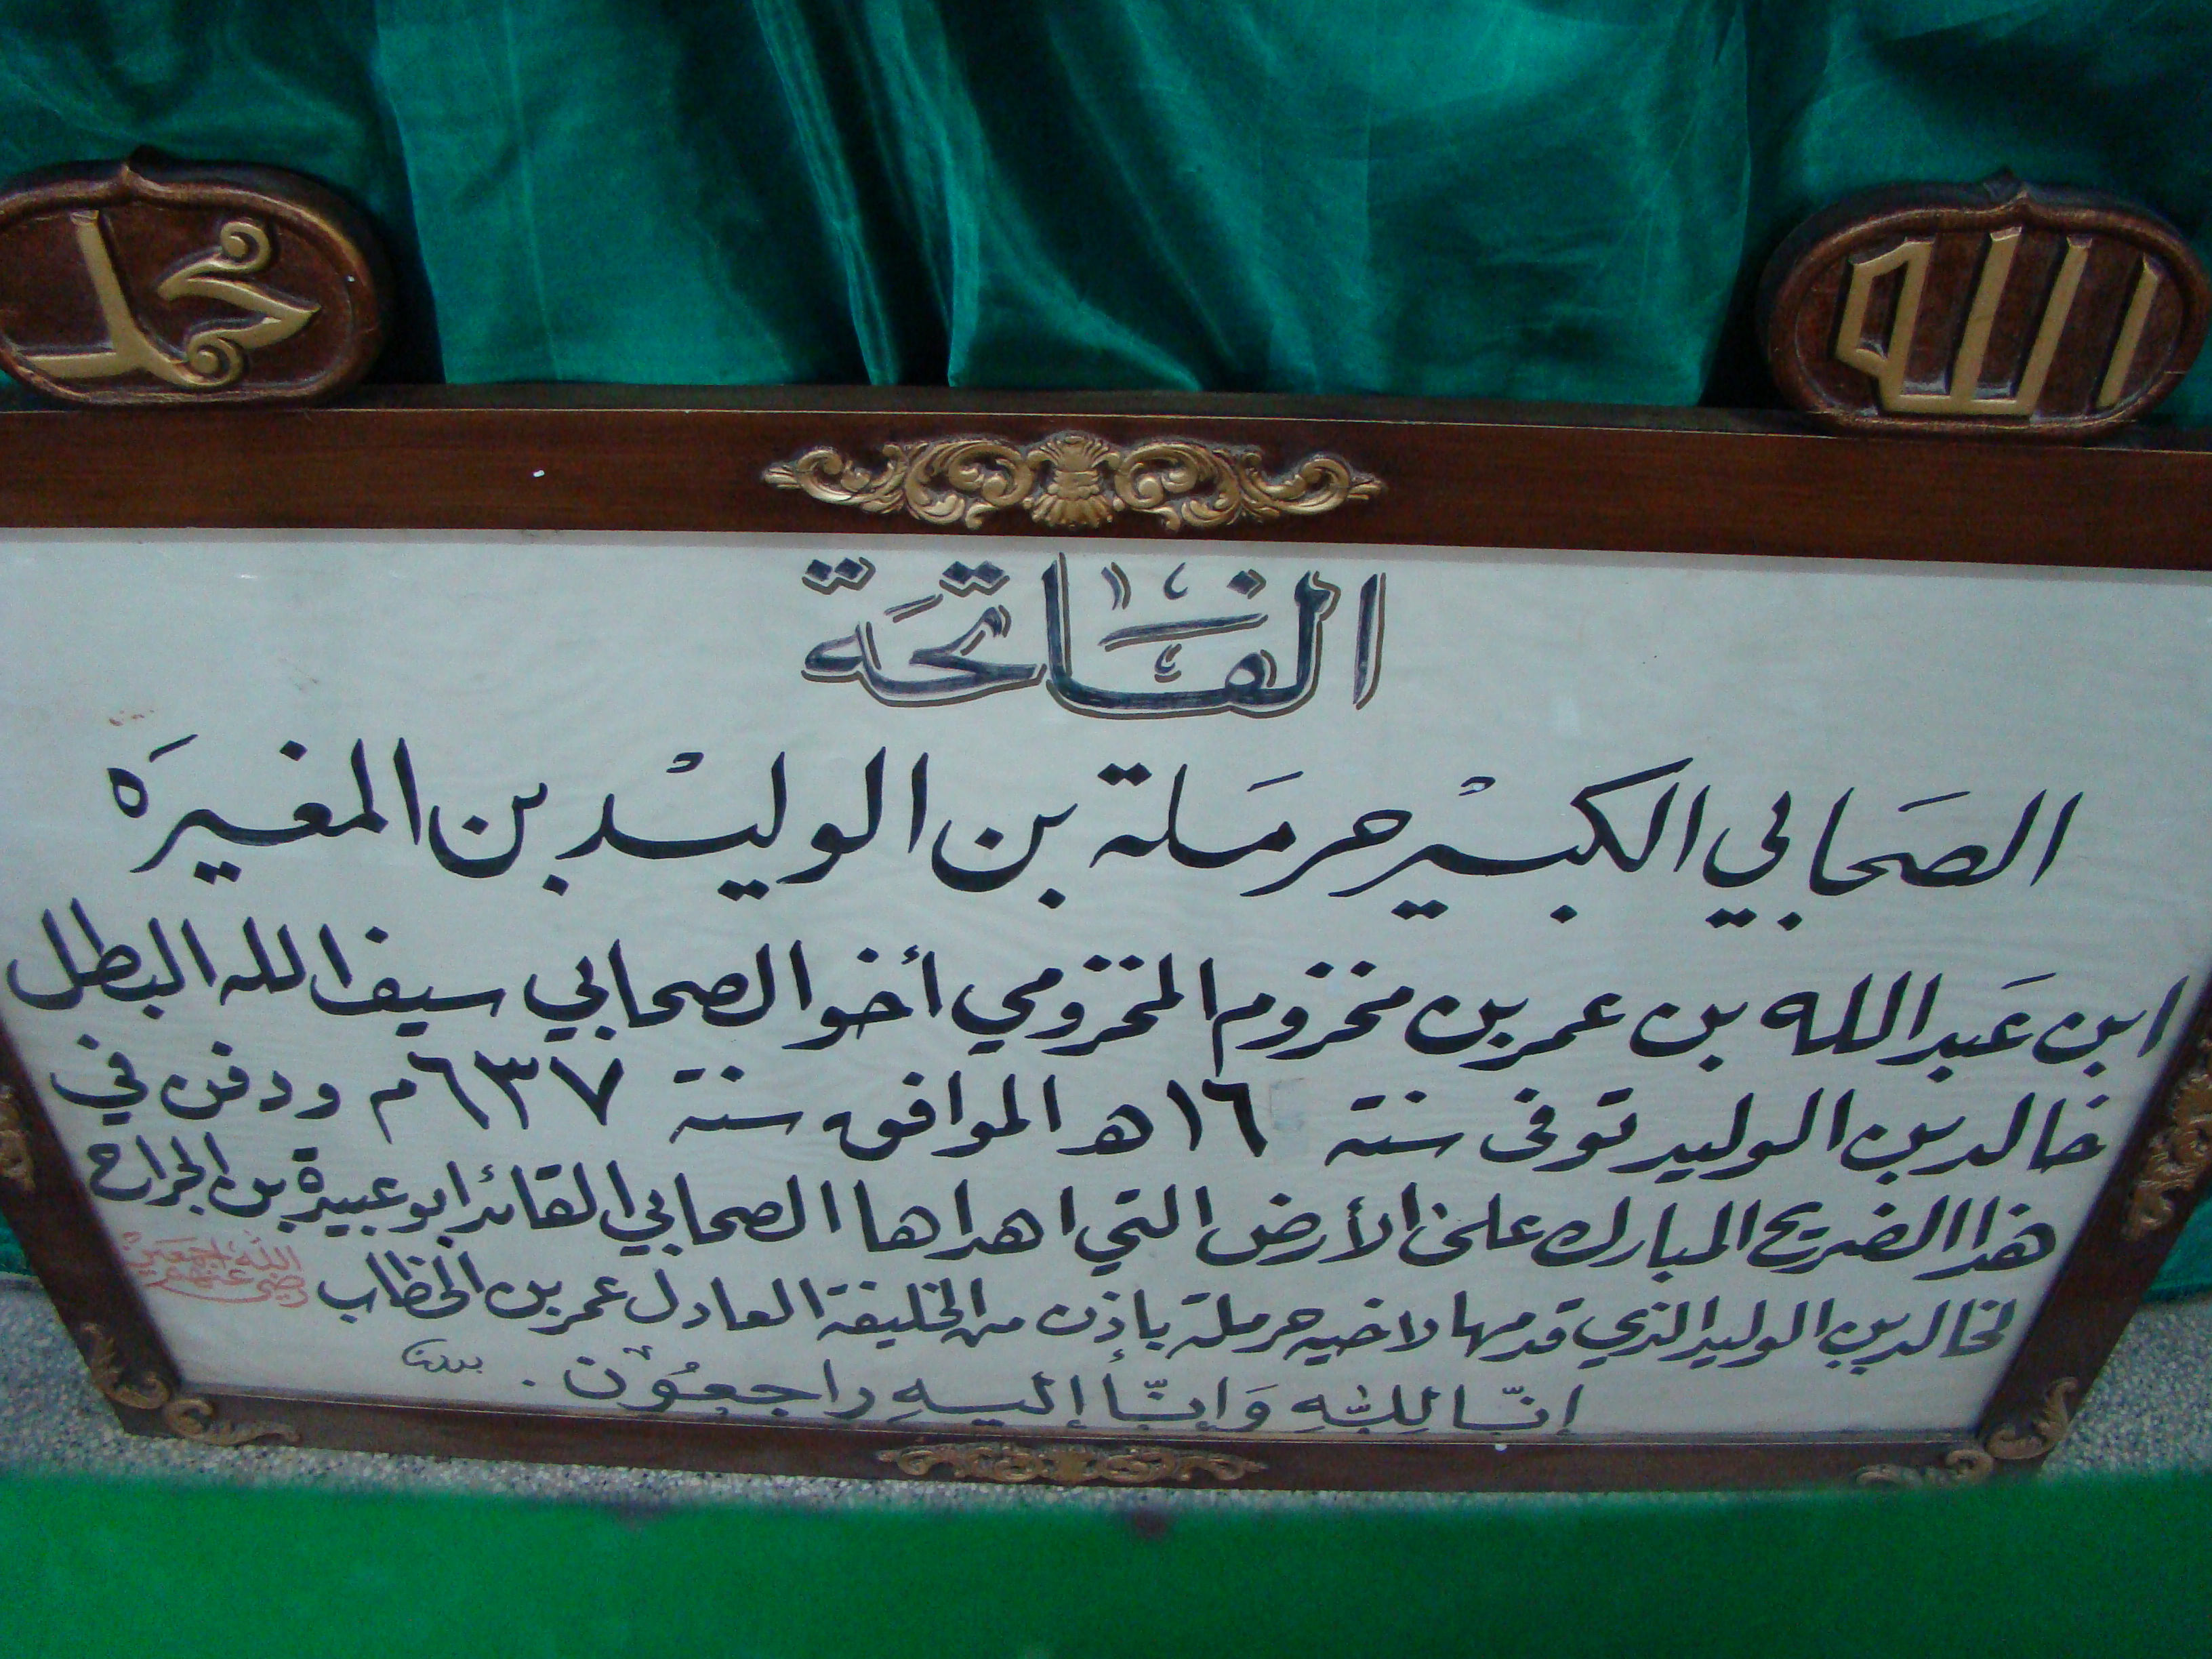 الله
محمد
الفاتحة
الصحابي الكبير حرملة بن الوليد بن المغيره
ابن عبد الله بن عمر بن مخزوم المخزومي أخو الصحابي سيف الله البطل
خالد بن الوليد توفى سنة ١٦ هـ الموافق سنة ٦٣٧ م ودفن في
هذا الضريح المبارك على الأرض التي اهداها الصحابي القائد ابو عبيدة بن الجراح
لخالد بن الوليد الذي قدمها لاخيه حرملة بإذن من الخليفة العادل عمر بن الخطاب
رضي الله عنهم اجمعين
إنّا لِلّهِ وَإنّأ إليهِ راجعُوْن .